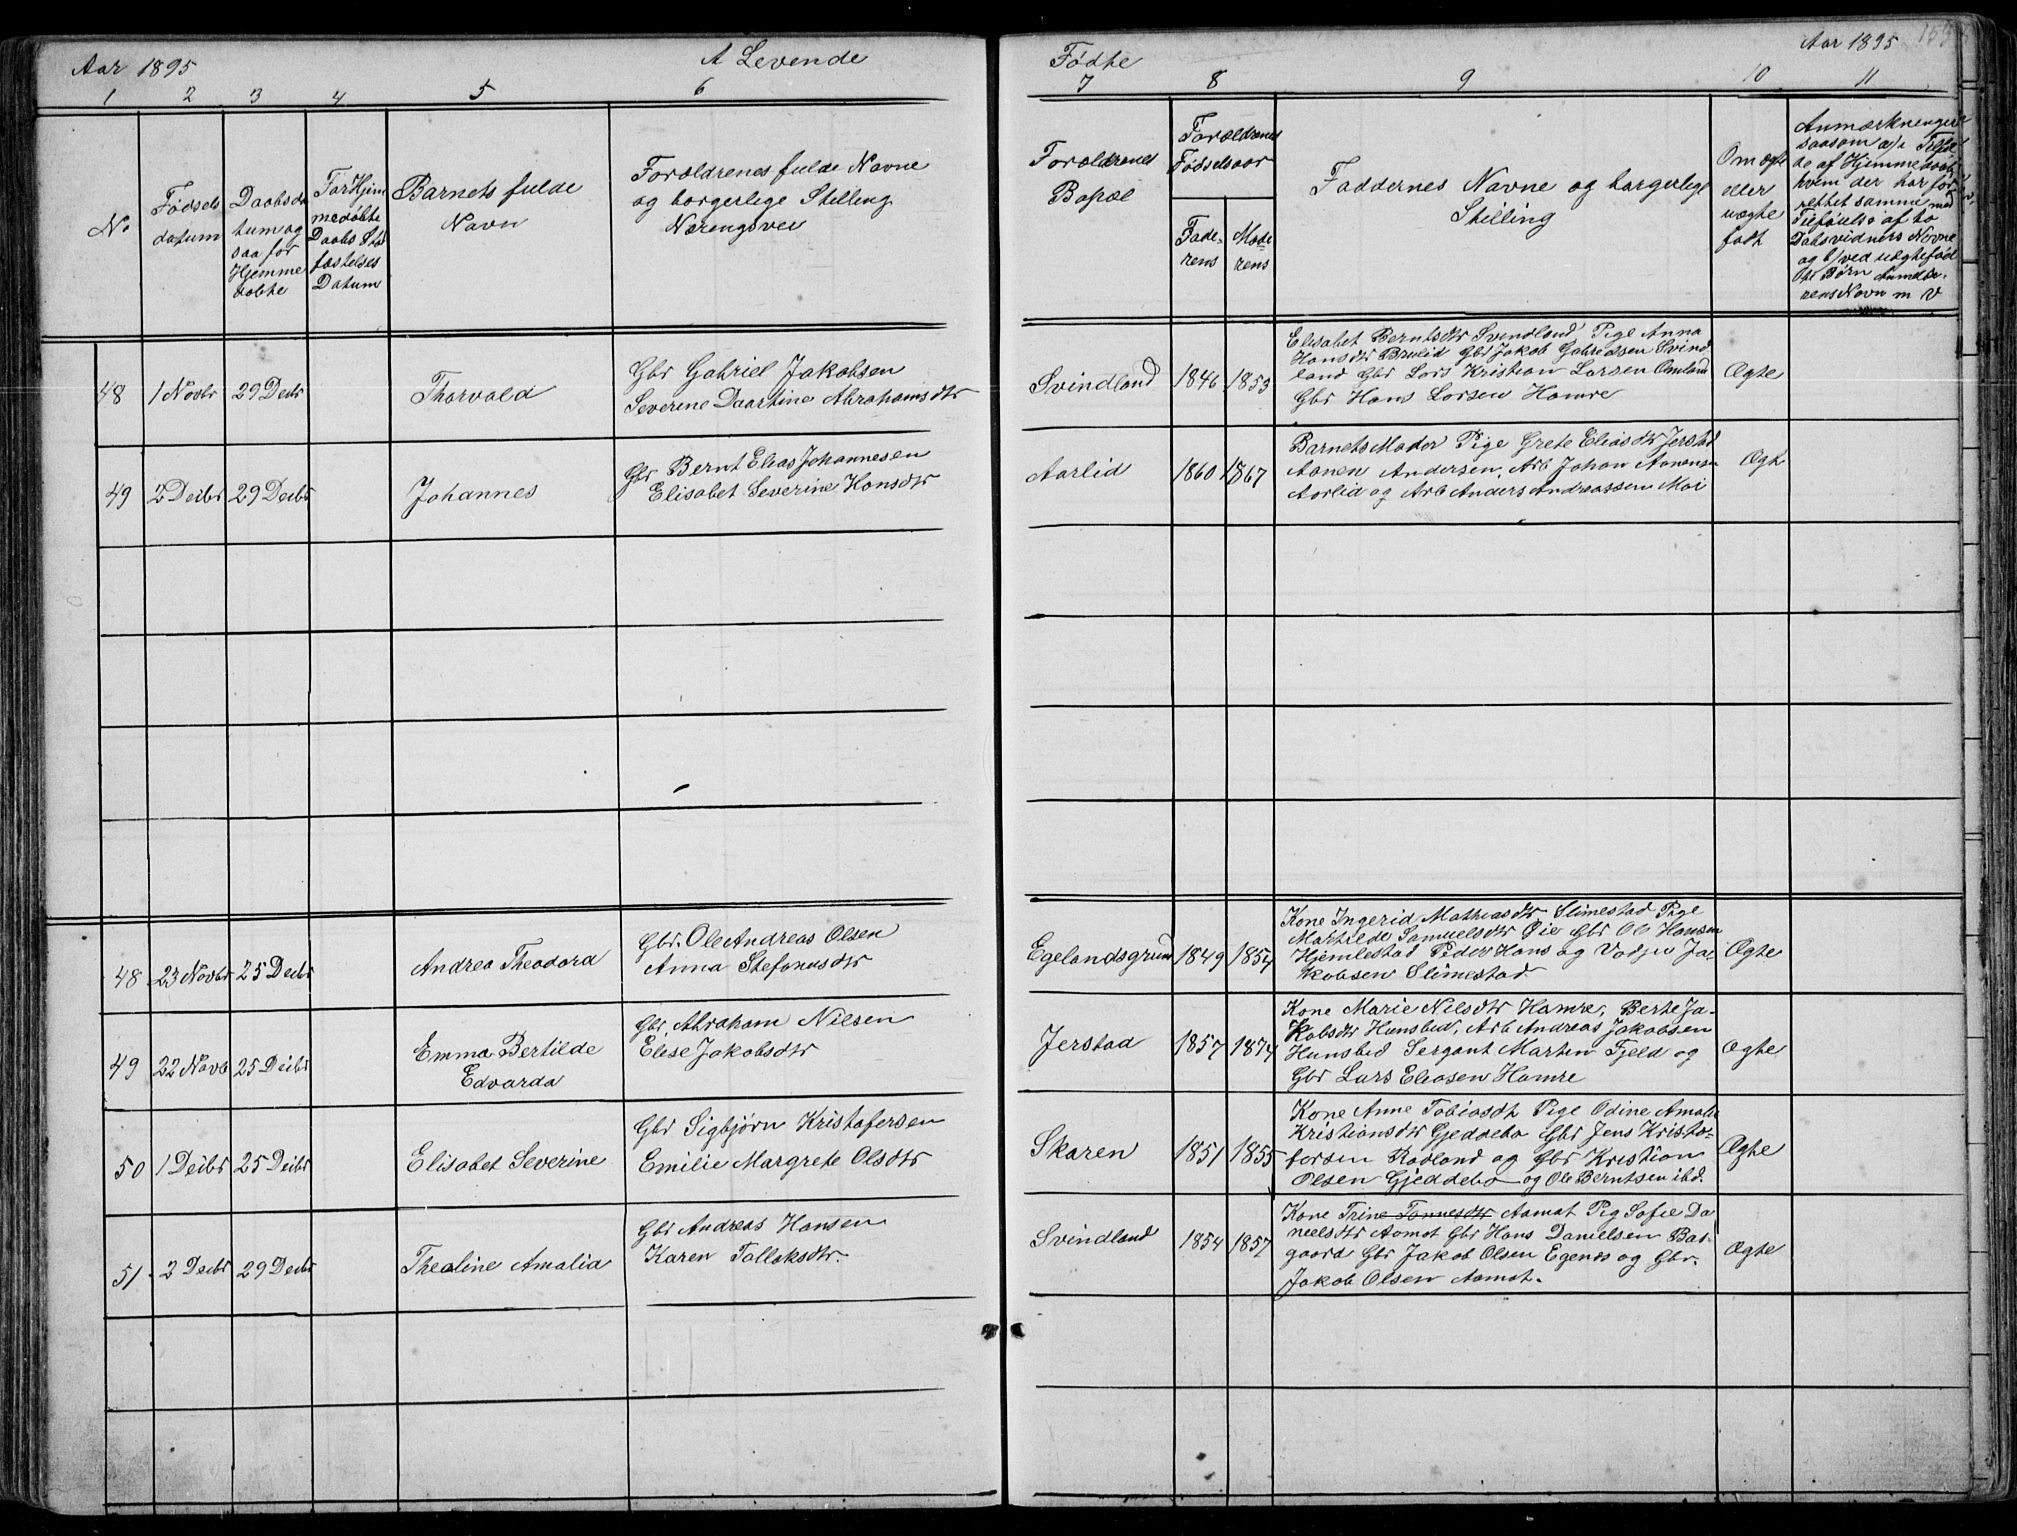 Aar 1895
A Levende
Fødte
Aar 1895
1 2 3 4 5 6 7 8 9 10 11
No
Fødsels
datum
Daabsda
tum og
saa for
Hjemme
døbte
For Hjem
medøbte
Daabs Stad
fæstelses
Datum
Barnets fulde
Navn
Forældrenes fulde Navne
og borgerlige Stilling
Næringsvei
Forældrenes
Bopæl
Forældrenes
Fødselsaar
Fade-
rens
Mode-
rens
Faddernes Navne og borgerlige
Stilling
Om ægte
eller
uægte
født
Anmærkninger
saasom a/:
de af Hjemmedøbt
hvem der har for
rettet samme med
Tilføielse af to
Daabsvidners Navne
og b/ ved uægtefød
te Børn Anmelde-
rens Navn m V
48 1 Novbr 29 Decbr Thorvald
Gbr Gabriel Jakobsen
Severine Daartine Abrahamsdtr
Svindland 1846 1853
Elisabet Berntsdtr Svindland Pige Anna
Hansdtr Brulid Gbr Jakob Gabrielsen Svind
land Gbr Lars Kristian Larsen Omland
Gbr Hans Larsen Hamre
Ægte
49 2 Decbr 29 Decbr Johannes
Gbr Bernt Elias Johannesen
Elisabet Severine Hansdtr
Aarlid 1860 1867
Barnets Moder Pige Grete Eliasdtr Jerstad
Aanen Andersen, Arb Johan Aanensen
Aarlid og Arb Anders Andreassen Moi
Ægt
48 23 Novbr 25 Decbr Andrea Theodora
Gbr. Ole Andreas Olsen
Anna Stefanusdtr
Egelandsgrund 1849 1854
Kone Ingerid Mathiasdtr Slimestad Pige
Mathilde Samuelsdtr Øie Gbr Ole Hansen
Hjemlestad Peder Hans og Vadju Ja-
kobsen Slimestad
Ægte
49 22 Novb 25 Decbr Emma Bertilde
Edvarda
Gbr, Abraham Nilsen
Elese Jakobsdtr
Jerstad 1857 1874
Kone Marie Nilsdtr Hamre, Berte Ja-
kobsdtr Hunsbed, Arb Andreas Jakobsen
Hunsbed Sergant Marten Fjeld og
Gbr Lars Eliasen Hamre
Ægte
50 1 Decbr 25 Decbr Elisabet Severine
Gbr Sigbjørn Kristofersen
Emilie Margrete Olsdtr
Skaren 1851 1855
Kone Anne Tobiasdt Pige Odine Amalie
Kristiansdtr Gjeddebo Gbr Jens Kristo-
fersen Rødland og Gbr Kristian
Olsen Gjeddebo og Ole Berntsen ibd.
Ægte
51 2 Decbr 29 Decbr Thealine Amalia
Gbr Andreas Hansen
Karen Tallaksdtr.
Svindland 1854 1857
Kone Trine Tønnesdtr Aamot Pig Sofie Da
nielsdtr Aamot Gbr Hans Danielsen Bas-
gaard Gbr Jakob Olsen Egenæs og Gbr.
Jakob Olsen Aamot.
Ægte